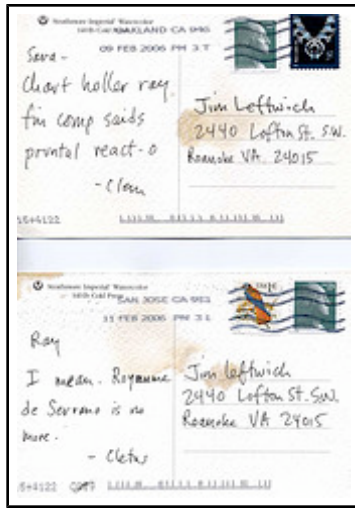 Strathmore Imperial Watercolor
140lb Cold OAKLAND CA 946
09 FEB 2006 PM 3 T
Sara-
Chart holler ray.
fin comp saids
prontal react-o
-Clem
Jim Leftwich
2440 Lofton St. S.W.
Roanoke VA 24015
Strathmore Imperial Watercolor
140lb Cold Press
SAN JOSE CA 951
11 FEB 2006 PM 3 L
Ray
I mean. Royaume
de Serrano is no
more.
- Cletus
Jim Leftwich
2440 Lofton St. S.W.
Roanoke VA 24015